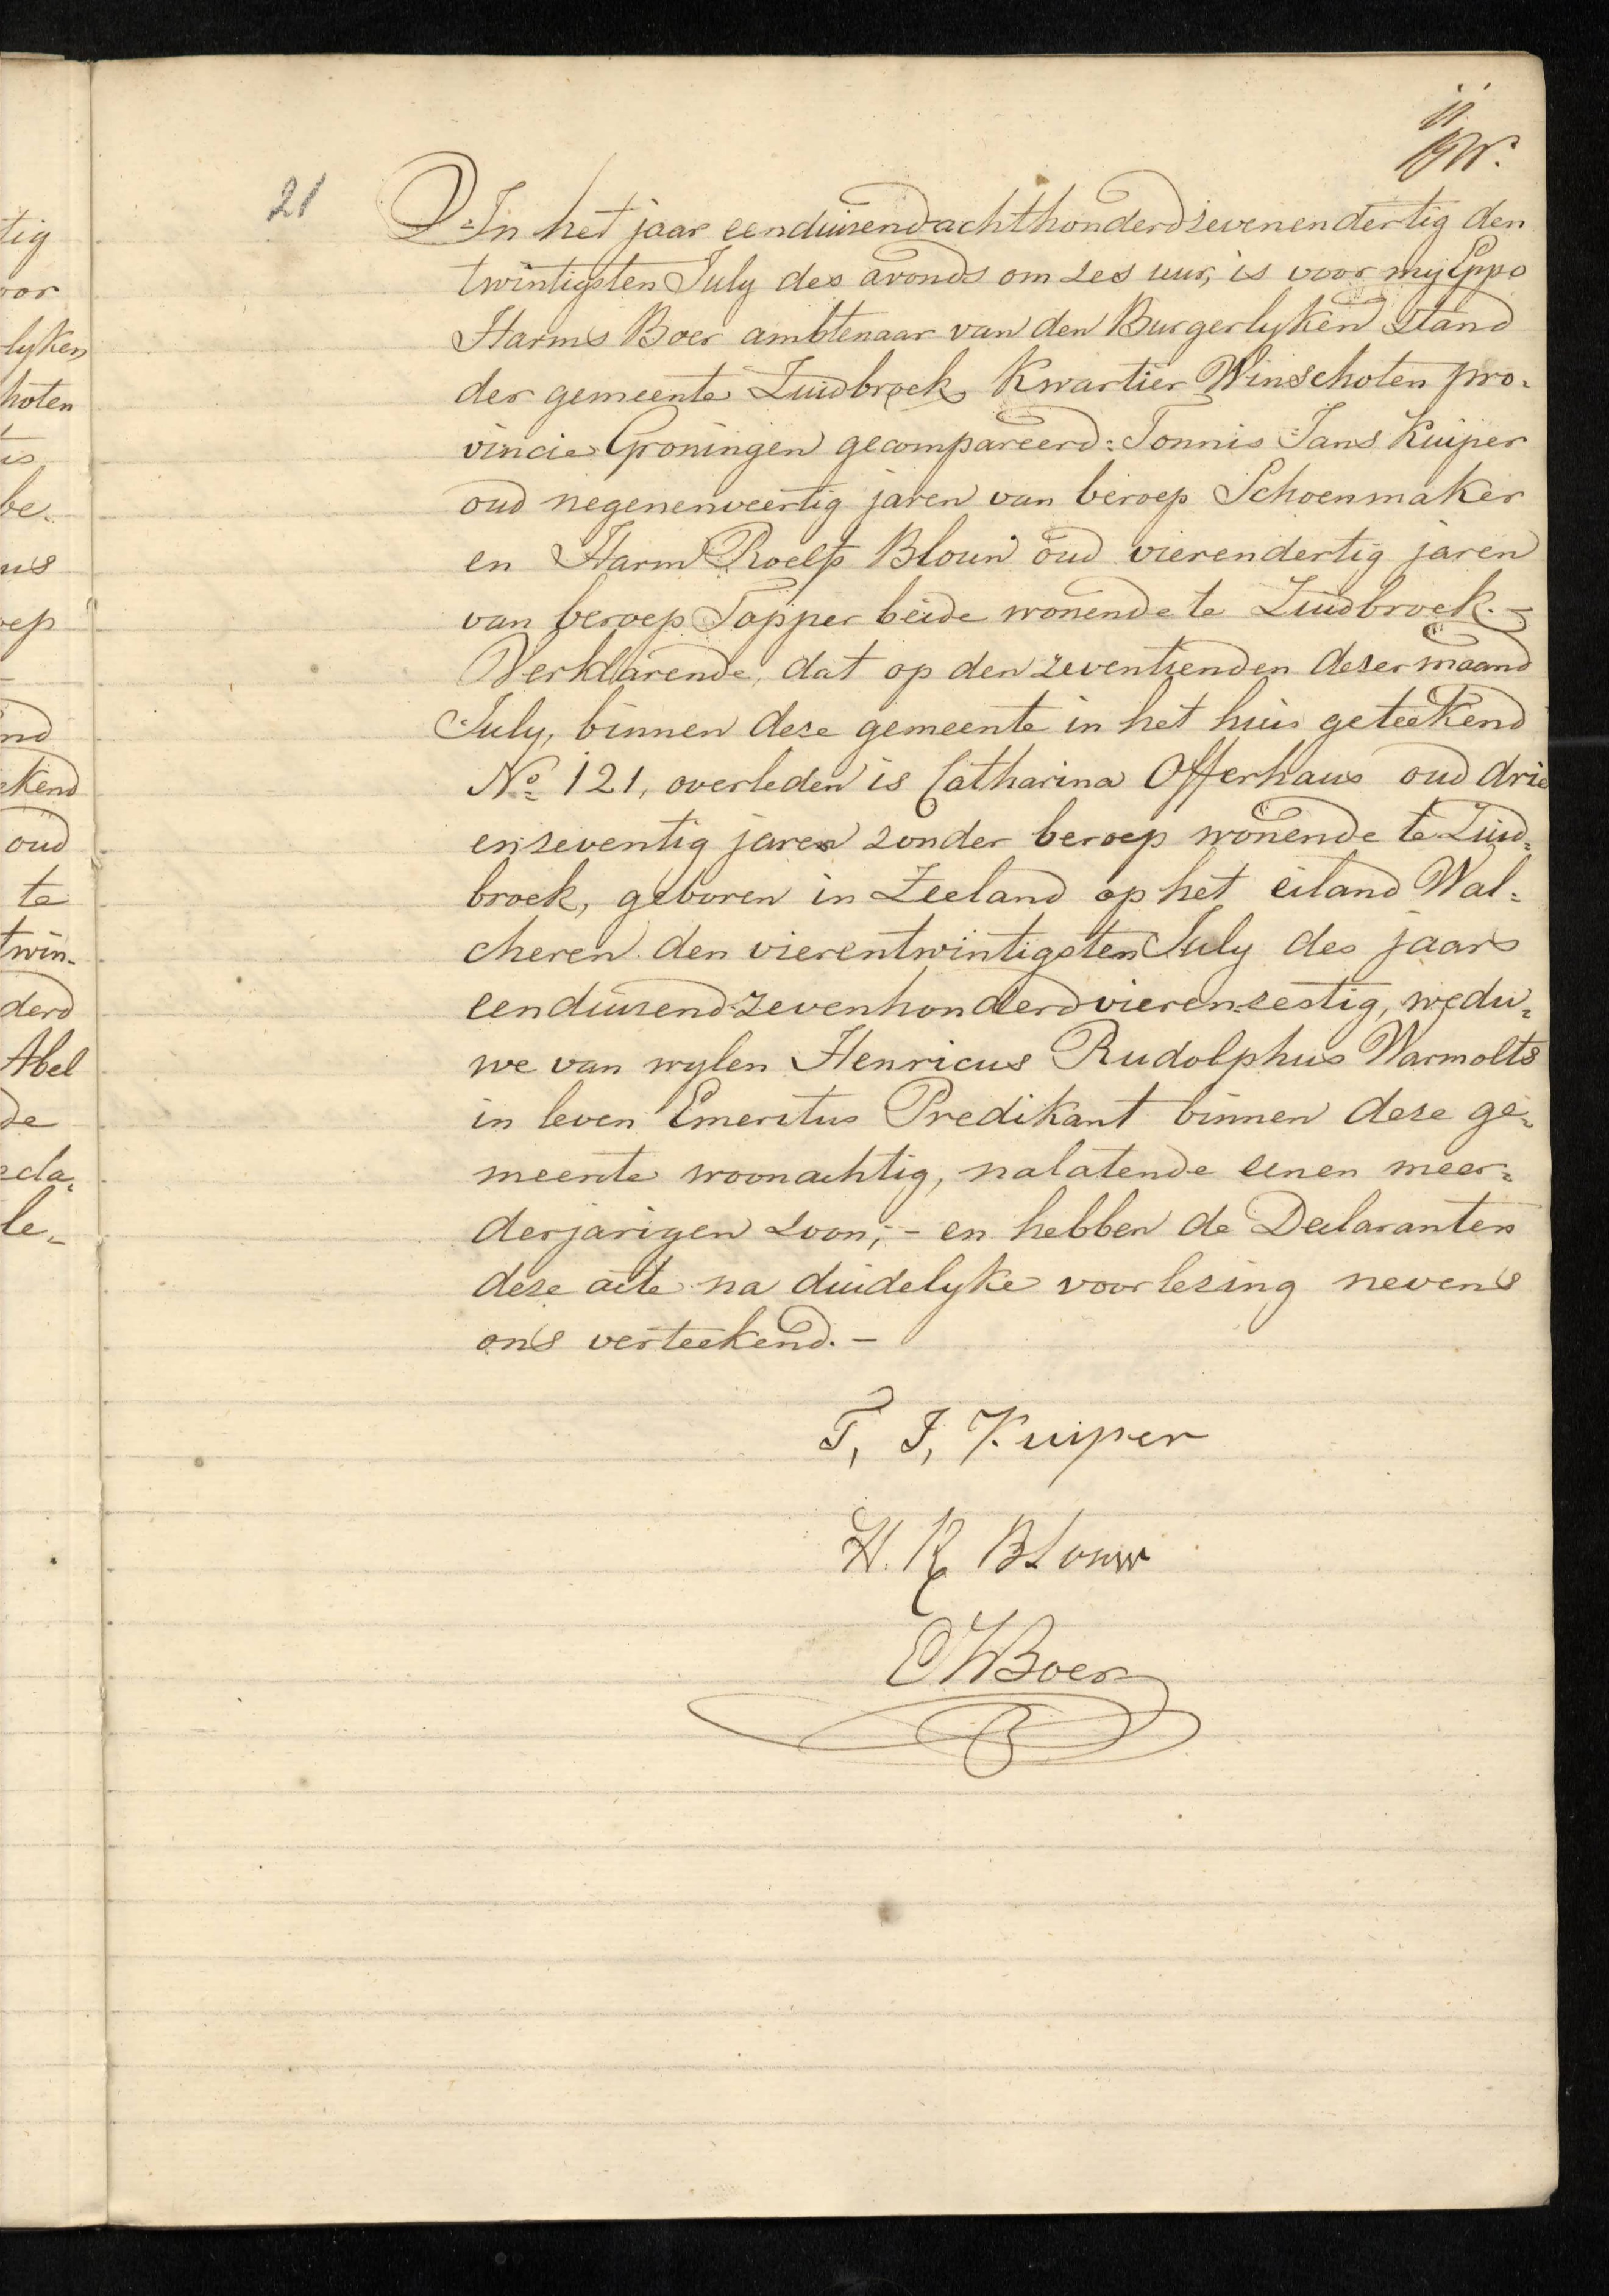 11
21
In het jaar eenduizendachthonderdzevenendertig den
twintigsten July des avonds om zes uur, is voor my Eppo
Harms Boer ambtenaar van den Burgerlyken Stand
der gemeente Zuidbroek, Kwartier Winschoten pro-
vincie Groningen gecompareerd: Tonnis Jans Kuiper
oud negenenveertig jaren van beroep Schoenmaker
en Harm Roelfs Blouw oud vierendertig jaren
van beroep Tapper beide wonende te Zuidbroek.-
Verklarende, dat op den zeventienden dezer maand
July, binnen deze gemeente in het huis geteekend
No. 121, overleden is Catharina Offerhaus oud drie
enzeventig jaren zonder beroep wonende te Zuid-
broek, geboren in Zeeland op het eiland Wal-
cheren den vierentwintigsten July des jaars
eenduizendzevenhonderdvierenzestig, wedu-
we van wylen Henricus Rudolphus Warmolts
in leven Emeritus Predikant binnen deze ge-
meente woonachtig, nalatende eenen meer-
derjarigen zoon; - en hebben de Declaranten
deze acte na duidelyke voorlezing nevens
ons verteekend. -
T, J, Kuiper
H. R Blouw
EHBoer
tig
oor
lyken
hoten
is
be-
us
oep
nd
ekend
oud
te
twin-
derd
Abel
de
eda-
le-